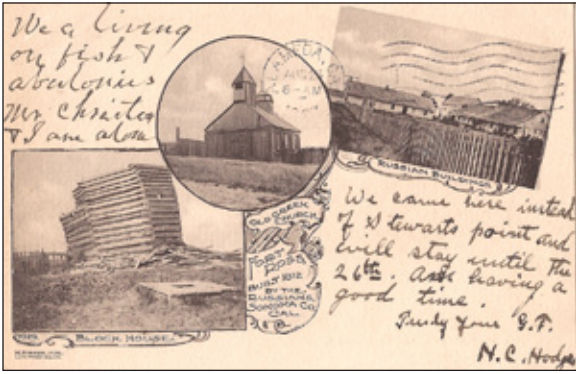 We a living
on fish &
abalonies
Mr
& I are alone
ALAMEDA, CAL.
6-AM
RUSSIAN BUILDINGS.
OLD GREEK
CHURCH
FORT
ROSS
BUILT 1812
BY THE
RUSSIANS,
SONOMA CO.
CAL.
BLOCK HOUSE.
We came here instead
of Stewarts point and
will stay until the
26th. Are having a
good time.
Yours
H.C. Hodges